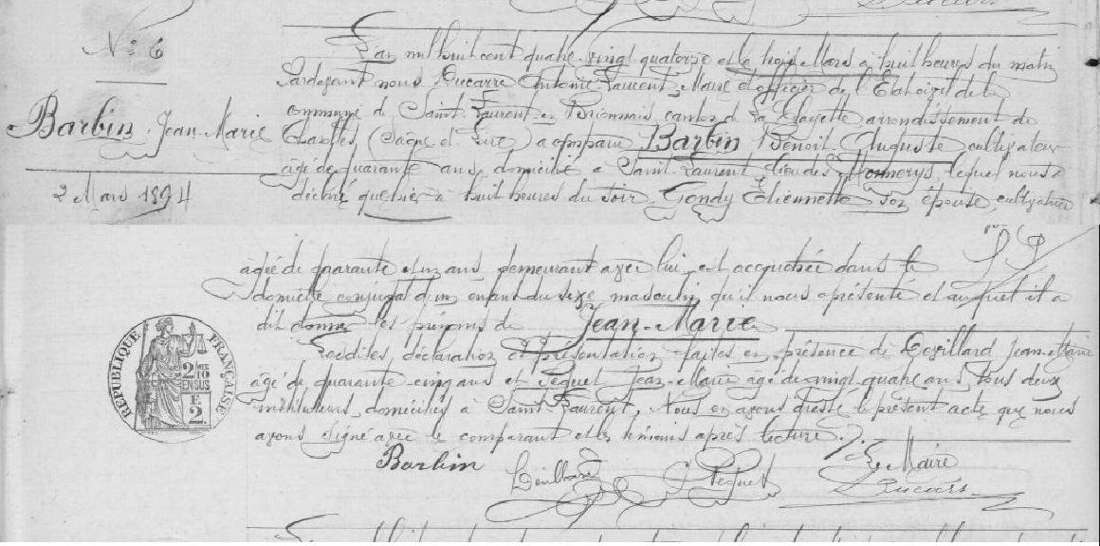 N° 6
Barbin Jean-Marie
2 Mars 1894
L'an mil huit cent quatre-vingt quatorze et le trois Mars à huit heures du matin
Pardevant nous Ducarre Antoine Laurent, Maire et officier de l'Etat civil de la
commune de Saint-Laurent-en-Brionnais, canton de La Clayette arrondissement de
Charolles, (Saône et Loire) a comparu Barbin Benoit-Auguste cultivateur
âgé de quarante ans, domicilié à Saint-Laurent lieu des lequel nous a
déclaré que hier à huit heures du soir, Gondy Etiennette son épouse, cultivatrice
âgée de quarante et un ans demeurant avec lui, est accouchée dans le
domicile conjugal d'un enfant du sexe masculin qu'il nous a présenté et auquel il a
dit donner les prénoms de Jean-Marie
Lesdites déclaration et présentation faites en présence de Jean-Marie
âgé de quarante cinq ans et Jean-Marie âgé de vingt quatre ans, tous deux
instituteurs, domiciliés à Saint-Laurent, Nous en avons dressé le présent acte que nous
avons signé avec le comparant et les témoins après lecture.
Barbin
Le Maire
Ducarre
REPUBLIQUE FRANÇAISE
2 MES
10
EN SUS
F.
2